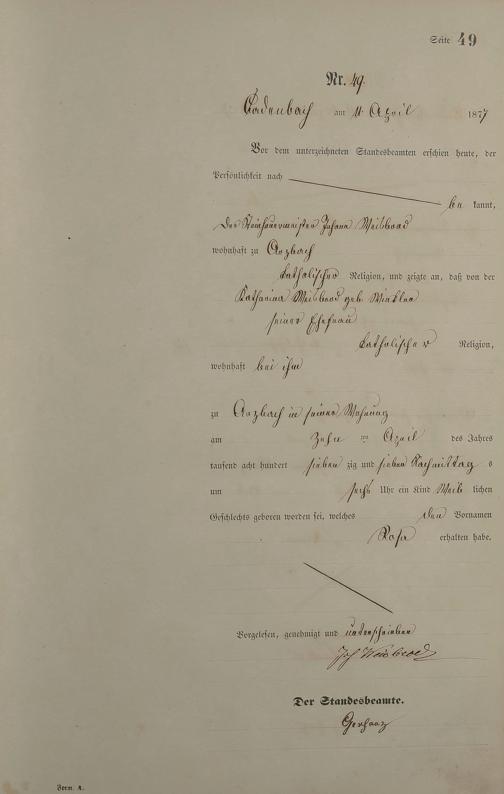 Seite 49
Nr. 49.
Cadenbach am 11 April 1877
Vor dem unterzeichneten Standesbeamten erschien heute, der
Persönlichkeit nach
be kannt,
der Steinhauermeister Johann Weisbrod
wohnhaft zu Arzbach
katholischer Religion, und zeigte an, daß von der
Katharina Weisbrod geb. Winkler
seiner Ehefrau
katholischer Religion,
wohnhaft bei ihm
zu Arzbach in seiner Wohnung
am zehn ten April des Jahres
tausend acht hundert sieben zig und sieben Nachmittag s
um sechs Uhr ein Kind Weib lichen
Geschlechts geboren worden sei, welches den Vornamen
Rosa erhalten habe.
Vorgelesen, genehmigt und unterschrieben
Joh Weisbrod
Der Standesbeamte.
Gerharz
Form. A.